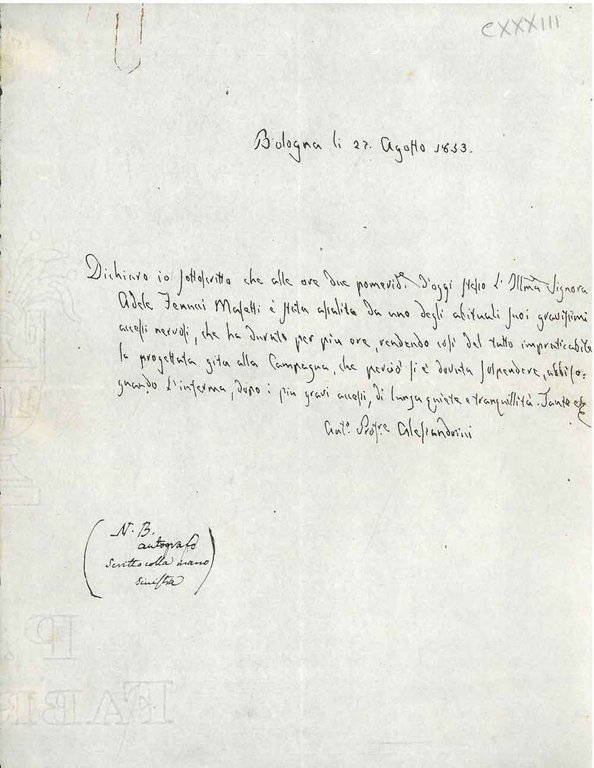 CXXXIII
Bologna li 27. Agosto 1853.
Dichiaro io sottoscritto che alle ore due pomerid.e d'oggi stesso l'Illma Signora
Adele Masetti è stata assalita da uno degli abituali suoi gravissimi
accessi nervosi, che ha durato per più ore, rendendo così del tutto impraticabile
la progettata gita alla Campagna, che perciò si è dovuta sospendere, abbiso-
gnando l'inferma, dopo i più gravi accessi, di lunga quiete e tranquillità. Tanto
Ant.o Prof.re Alessandrini
N. B.
autografo
scritto colla mano
sinistra
P.
FABR